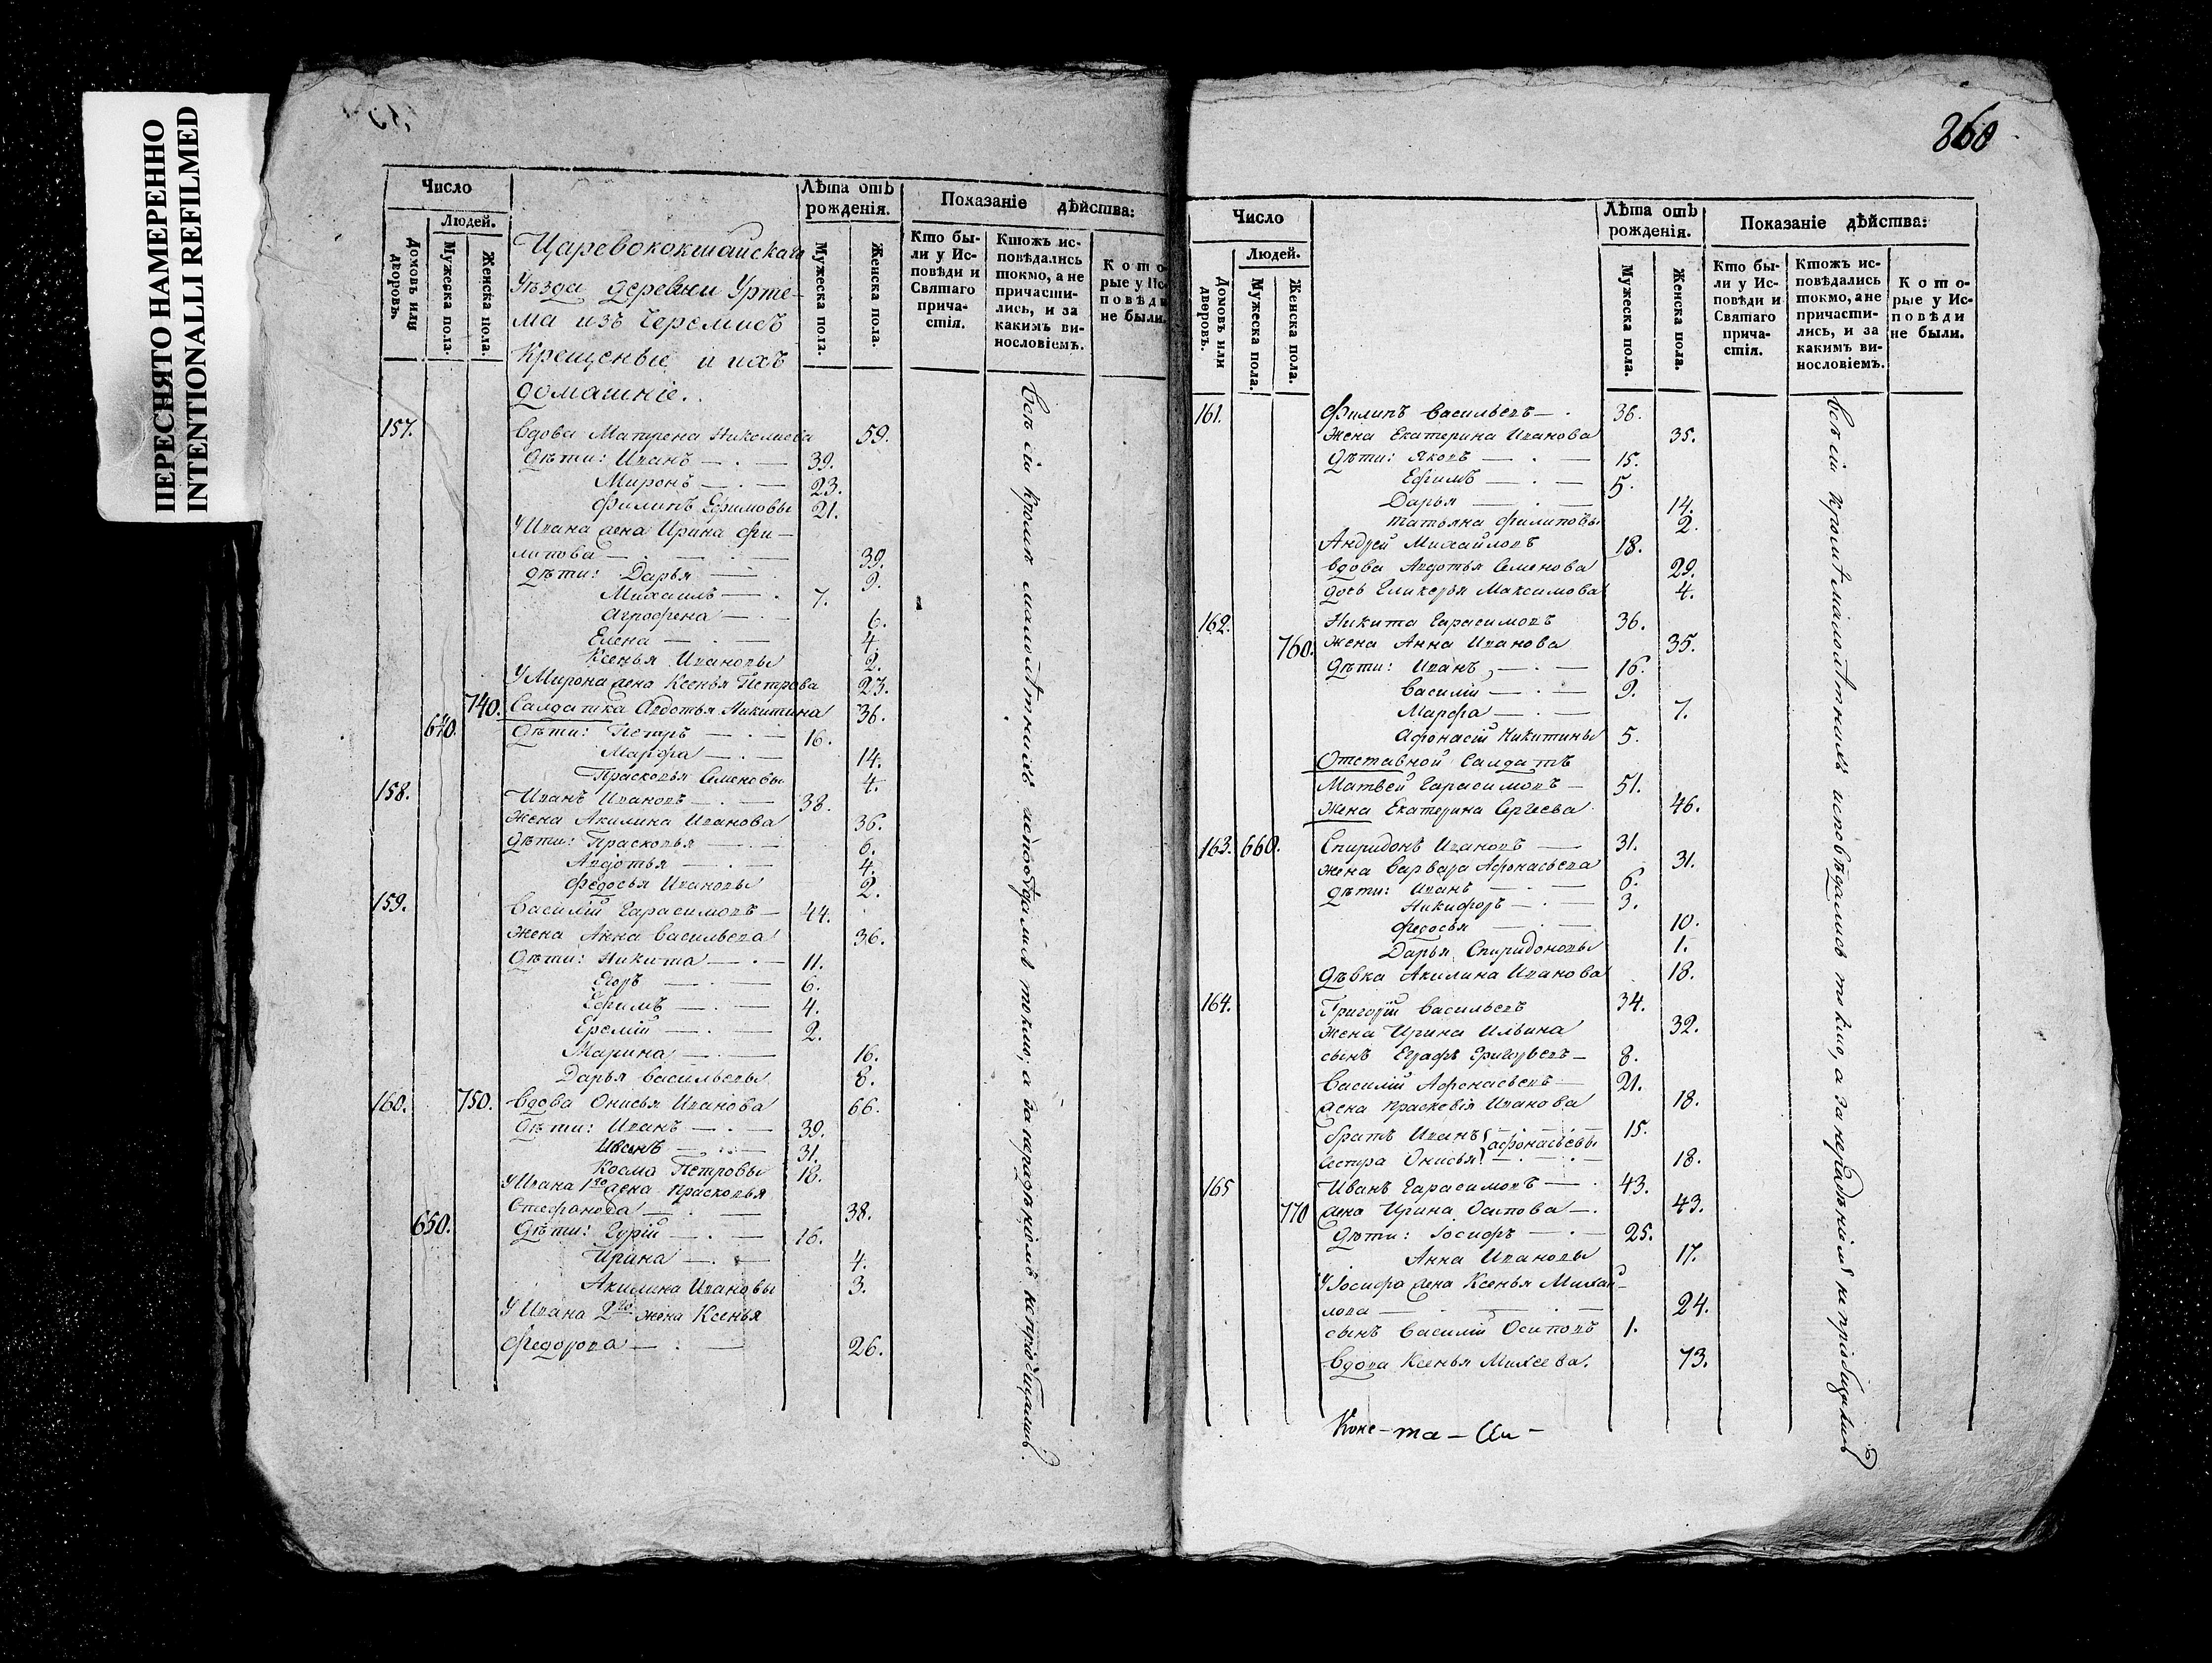 ПЕРЕСНЯТО НАМЕРЕННО
INTENTIONALLI REFILMED
Число
Людей.
Домовъ или дворовъ.
Мужеска пола.
Женска пола.
Лѣта отъ рожденія.
Мужеска пола.
Женска пола.
Показаніе дѣйства:
Кто бы-
ли у Ис-
повѣди и
Святаго
прича-
стія.
Ктожъ ис-
повѣдались
токмо, а не
причасти-
лись, и за
какимъ ви-
нословіемъ.
Кото-
рые у Ис-
повѣди
не были.
Царевококшайскаго
Уѣзда деревни Урте-
ма изъ Черемисъ
Крещеные и ихъ
домашніе.
157. Вдова Матрена Николаева 59.
Дѣти: Иванъ 39.
Миронъ 23.
Филипъ Ефимовы 21.
У Ивана жена Ирина Фи-
липова 39.
Дѣти: Дарья 9.
Михаилъ 7.
Агрофена 6.
Елена 4.
Ксенья Ивановы 2.
У Мирона жена Ксенья Петрова 23.
740. Салдатка Авдотья Никитина 36.
640. Дѣти: Петръ 16.
Марфа 14.
Прасковья Семеновы 4.
158. Иванъ Ивановъ 38.
Жена Акилина Иванова 36.
Дѣти: Прасковья 6.
Авдотья 4.
Федосья Ивановы 2.
159. Василій Гарасимовъ 44.
Жена Анна Васильева 36.
Дѣти: Никита 11.
Егоръ 6.
Ефимъ 4.
Еремій 2.
Марина 16.
Дарья Васильевы 8.
160. 750. Вдова Онисья Иванова 66.
Дѣти: Иванъ 39.
Иванъ 31.
Косма Петровы 18.
У Ивана 1го жена Прасковья
Стефанова 38.
650. Дѣти: Гурій 16.
Ирина 4.
Акилина Ивановы 3.
У Ивана 2го жена Ксенья
Федорова 26.
Всѣ сіи кромѣ малолѣтнихъ исповѣдались токмо, а за нерадѣніемъ не пріобщались.
860
Число
Людей.
Домовъ или дворовъ.
Мужеска пола.
Женска пола.
Лѣта отъ рожденія.
Мужеска пола.
Женска пола.
Показаніе дѣйства:
Кто бы-
ли у Ис-
повѣди и
Святаго
прича-
стія.
Ктожъ ис-
повѣдались
токмо, а не
причасти-
лись, и за
какимъ ви-
нословіемъ.
Кото-
рые у Ис-
повѣди
не были.
161. Филипъ Васильевъ 36.
Жена Екатерина Иванова 35.
Дѣти: Яковъ 15.
Ефимъ 5.
Дарья 14.
Татьяна Филиповы 2.
Андрей Михайловъ 18.
Вдова Авдотья Семенова 29.
дочь Гликерья Максимова 4.
162. Никита Гарасимовъ 36.
760. Жена Анна Иванова 35.
Дѣти: Иванъ 16.
Василій 9.
Марфа 7.
Афонасій Никитины 5.
Отставной Салдатъ
Матвей Гарасимовъ 51.
Жена Екатерина Сергеева 46.
163. 660. Спиридонъ Ивановъ 31.
Жена Варвара Афонасьева 31.
Дѣти: Иванъ 6.
Никифоръ 3.
Федосья 10.
Дарья Спиридоновы 1.
Дѣвка Акилина Иванова 18.
164. Григорій Васильевъ 34.
Жена Ирина Ильина 32.
сынъ Еграфъ Григорьевъ 8.
Василій Афонасьевъ 21.
жена Прасковія Иванова 18.
братъ Иванъ 15.
Афонасьевы
сестра Онисья 18.
165 Иванъ Гарасимовъ 43.
770 жена Ирина Осипова 43.
Дѣти: Іосифъ 25.
Анна Ивановы 17.
У Іосифа жена Ксенья Михай-
лова 24.
сынъ Василій Осиповъ 1.
Вдова Ксенья Михеева. 73.
Всѣ сіи кромѣ малолѣтнихъ исповѣдались токмо, а за нерадѣніемъ не пріобщились